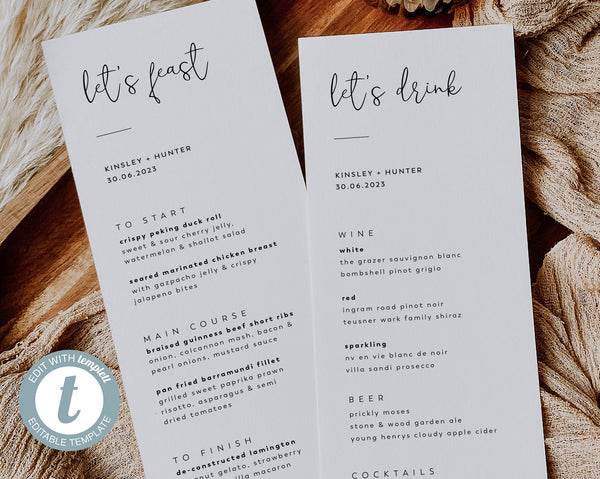 let's feast
KINSLEY + HUNTER
30.06.2023
TO START
crispy peking duck roll
sweet & sour cherry jelly,
watermelon & shallot salad
seared marinated chicken breast
with gazpacho jelly & crispy
jalapeno bites
MAIN COURSE
braised guinness beef short ribs
onion, colcannon mash, bacon &
pearl onions, mustard sauce
pan fried barramundi fillet
grilled sweet paprika prawn
risotto, asparagus & semi
dried tomatoes
TO FINISH
de-constructed lamington
gelato, strawberry
vanilla macaron
let's drink
KINSLEY + HUNTER
30.06.2023
WINE
white
the grazer sauvignon blanc
bombshell pinot grigio
red
ingram road pinot noir
teusner wark family shiraz
sparkling
nv en vie blanc de noir
villa sandi prosecco
BEER
prickly moses
stone & wood garden ale
young henrys cloudy apple cider
COCKTAILS
EDIT WITH templett
t
EDITABLE TEMPLATE